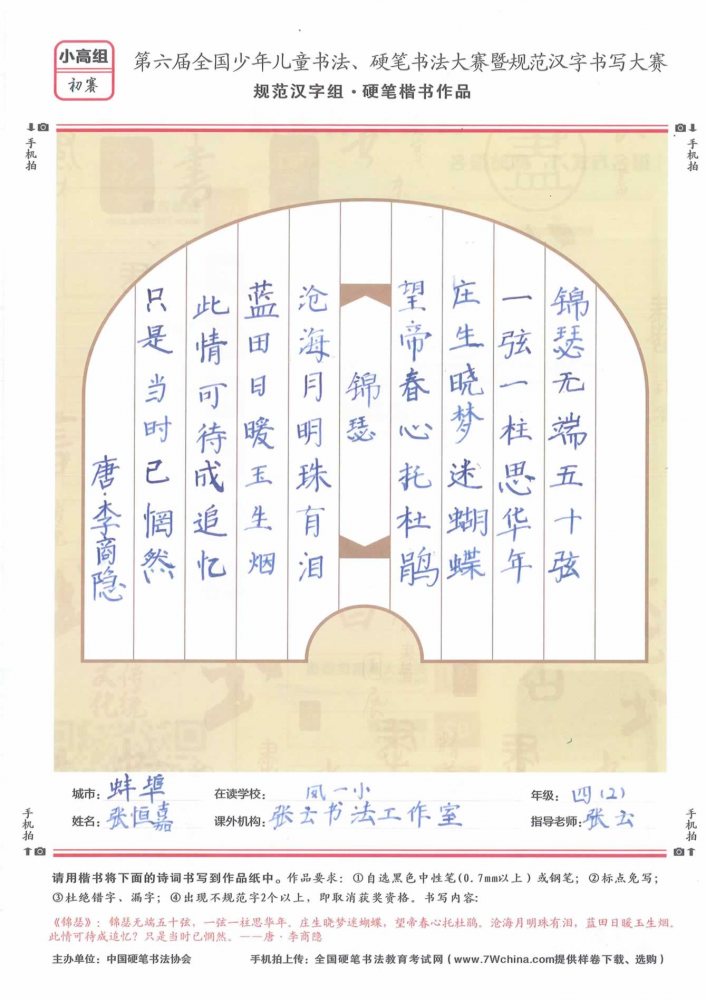 小高组
初赛
第六届全国少年儿童书法、硬笔书法大赛暨规范汉字书写大赛
规范汉字组·硬笔楷书作品
手机拍
手机拍
锦瑟无端五十弦
一弦一柱思华年
庄生晓梦迷蝴蝶
望帝春心托杜鹃
锦瑟
沧海月明珠有泪
蓝田日暖玉生烟
此情可待成追忆
只是当时已惘然
唐·李商隐
城市：蚌埠 在读学校：凤一小 年级：四（2）
姓名：张恒嘉 课外机构：张云书法工作室 指导老师：张云
手机拍
手机拍
请用楷书将下面的诗词书写到作品纸中。作品要求：①自选黑色中性笔(0.7mm以上）或钢笔；②标点免写；
③杜绝错字、漏字；④出现不规范字2个以上，即取消获奖资格。书写内容：
《锦瑟》：锦瑟无端五十弦，一弦一柱思华年。庄生晓梦迷蝴蝶，望帝春心托杜鹃。沧海月明珠有泪，蓝田日暖玉生烟。
此情可待成追忆？只是当时已惘然。——唐·李商隐
主办单位：中国硬笔书法协会 手机拍上传：全国硬笔书法教育考试网（www.7Wchina.com提供样卷下载、选购）